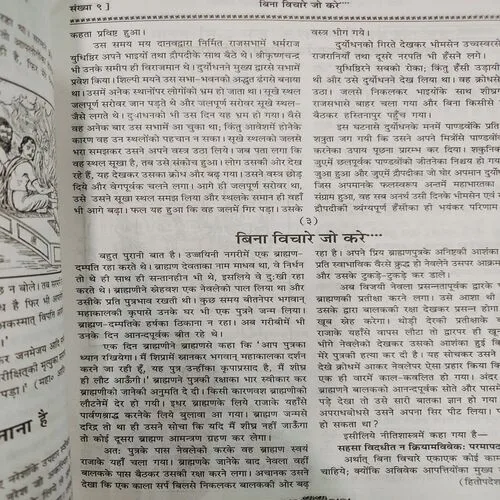 संख्या १ ]
बिना विचारे जो करे····
कहता प्रविष्ट हुआ।
उस समय मय दानवद्वारा निर्मित राजसभामें धर्मराज
युधिष्ठिर अपने भाइयों तथा द्रौपदीके साथ बैठे थे। श्रीकृष्णचन्द्र
भी उनके समीप ही विराजमान थे। दुर्योधनने मुख्य द्वारसे सभामें
प्रवेश किया। शिल्पी मयने उस सभा-भवनको अद्भुत ढंगसे बनाया
था। उसमें अनेक स्थानोंपर लोगोंको भ्रम हो जाता था। सूखे स्थल
जलपूर्ण सरोवर जान पड़ते थे और जलपूर्ण सरोवर सूखे स्थल-
जैसे लगते थे। दुर्योधनको भी उस दिन यह भ्रम हो गया। वैसे
वह अनेक बार उस सभामें आ चुका था; किंतु आवेशमें होनेके
कारण वह उन स्थलोंको पहचान न सका। सूखे स्थलको जलसे
भरा समझकर उसने अपने वस्त्र उठा लिये। जब पता लगा कि
वह स्थल सूखा है, तब उसे संकोच हुआ। लोग उसकी ओर देख
रहे हैं, यह देखकर उसका क्रोध और बढ़ गया। उसने वस्त्र छोड़
दिये और वेगपूर्वक चलने लगा। आगे ही जलपूर्ण सरोवर था,
उसे उसने सूखा स्थल समझ लिया और स्थलके समान ही वहाँ
भी आगे बढ़ा। फल यह हुआ कि वह जलमें गिर पड़ा। उसके
वस्त्र भीग गये।
दुर्योधनको गिरते देखकर भीमसेन उच्चस्वरसे
राजरानियाँ तथा दूसरे नरपति भी हँसने लगे।
युधिष्ठिरने सबको रोका; किंतु हँसी उड़ायी
थी और उसे दुर्योधनने देख लिया था। वह क्रोधसे
उठा। जलसे निकलकर भाइयोंके साथ शीघ्रग
राजसभासे बाहर चला गया और बिना किसीसे
बैठकर हस्तिनापुर पहुँच गया।
इस घटनासे दुर्योधनके मनमें पाण्डवोंके प्रति
शत्रुता जग गयी कि उसने अपने मित्रोंसे पाण्डवोंको
करनेका उपाय पूछना प्रारम्भ कर दिया। शकुनिक
जुएमें छलपूर्वक पाण्डवोंको जीतनेका निश्चय हो गय
जुआ हुआ और जुएमें द्रौपदीका जो घोर अपमान दुर्योध
जिस अपमानके फलस्वरूप अन्तमें महाभारतका
संग्राम हुआ, वह सब अनर्थ उसी दिनके भीमसेन एवं
द्रौपदीकी व्यंग्यपूर्ण हँसीका ही भयंकर परिणाम
(३)
बिना विचारे जो करे····
बहुत पुरानी बात है। उज्जयिनी नगरीमें एक ब्राह्मण-
दम्पति रहा करते थे। ब्राह्मण देवताका नाम माधव था, वे निर्धन
तो थे ही साथ ही सन्तानहीन भी थे, इसलिये वे दुःखी रहा
करते थे। ब्राह्मणीने स्नेहवश एक नेवलेको पाल लिया था और
उसीके प्रति पुत्रभाव रखती थी। कुछ समय बीतनेपर भगवान्
महाकालकी कृपासे उनके घर भी एक पुत्रने जन्म लिया।
ब्राह्मण-दम्पतिके हर्षका ठिकाना न रहा। अब गरीबीमें भी
उनके दिन आनन्दपूर्वक बीत रहे थे।
एक दिन ब्राह्मणीने ब्राह्मणसे कहा कि 'आप पुत्रका
ध्यान रखियेगा। मैं शिप्रामें स्नानकर भगवान् महाकालका दर्शन
करने जा रही हूँ, यह पुत्र उन्हींका कृपाप्रसाद है, मैं शीघ्र
ही लौट आऊँगी।' ब्राह्मणने पुत्रकी रक्षाका भार स्वीकार कर
ब्राह्मणीको जानेकी अनुमति दे दी। किसी कारणवश ब्राह्मणीको
लौटनेमें देर हो गयी। इधर ब्राह्मणके लिये राजाके यहाँसे
पार्वणश्राद्ध करनेके लिये बुलावा आ गया। ब्राह्मण जन्मसे
दरिद्र तो था ही उसने सोचा कि यदि मैं शीघ्र नहीं जाऊँगा
तो कोई दूसरा ब्राह्मण आमन्त्रण ग्रहण कर लेगा।
अतः पुत्रके पास नेवलेको करके वह ब्राह्मण स्वयं
राजाके यहाँ चला गया। ब्राह्मणके जानेके बाद नेवला वहीं
बालकके पास बैठकर उसकी रक्षा करने लगा। अचानक उसने
देखा कि एक काला सर्प बिलसे निकलकर बालककी ओर बढ़
रहा है। अपने प्रिय ब्राह्मणपुत्रके अनिष्टकी आशंका
प्रति स्वाभाविक वैरसे क्रुद्ध हो नेवलेने उसपर आक्र
और उसके टुकड़े-टुकड़े कर डाले।
अब विजयी नेवला प्रसन्नतापूर्वक द्वारके
ब्राह्मणकी प्रतीक्षा करने लगा। उसे आशा थी
उसके द्वारा बालककी रक्षा देखकर प्रसन्न होगा
खूब स्नेह करेगा। थोड़ी देरकी प्रतीक्षाके
राजाके यहाँसे वापस लौटा तो द्वारपर ही खून
भीगे नेवलेको देखकर उसको आशंका हुई कि
मेरे पुत्रकी हत्या कर दी है। यह सोचकर उसने
देखे क्रोधमें आकर नेवलेपर ऐसा प्रहार किया कि
एक ही वारमें काल-कवलित हो गया। अंदर
ब्राह्मणने बालकको आनन्दपूर्वक सोते और पासमें
पड़े देखा तो उसे सारी बातका ज्ञान हो गया।
अपराधबोधसे उसने अपना सिर पीट लिया।
हो सकता था?
इसीलिये नीतिशास्त्रमें कहा गया है—
सहसा विदधीत न क्रियामविवेकः परमापद
अर्थात् बिना विचारे एकाएक कोई काम
चाहिये; क्योंकि अविवेक आपत्तियोंका मुख्य
(हितोपदे
नाना है